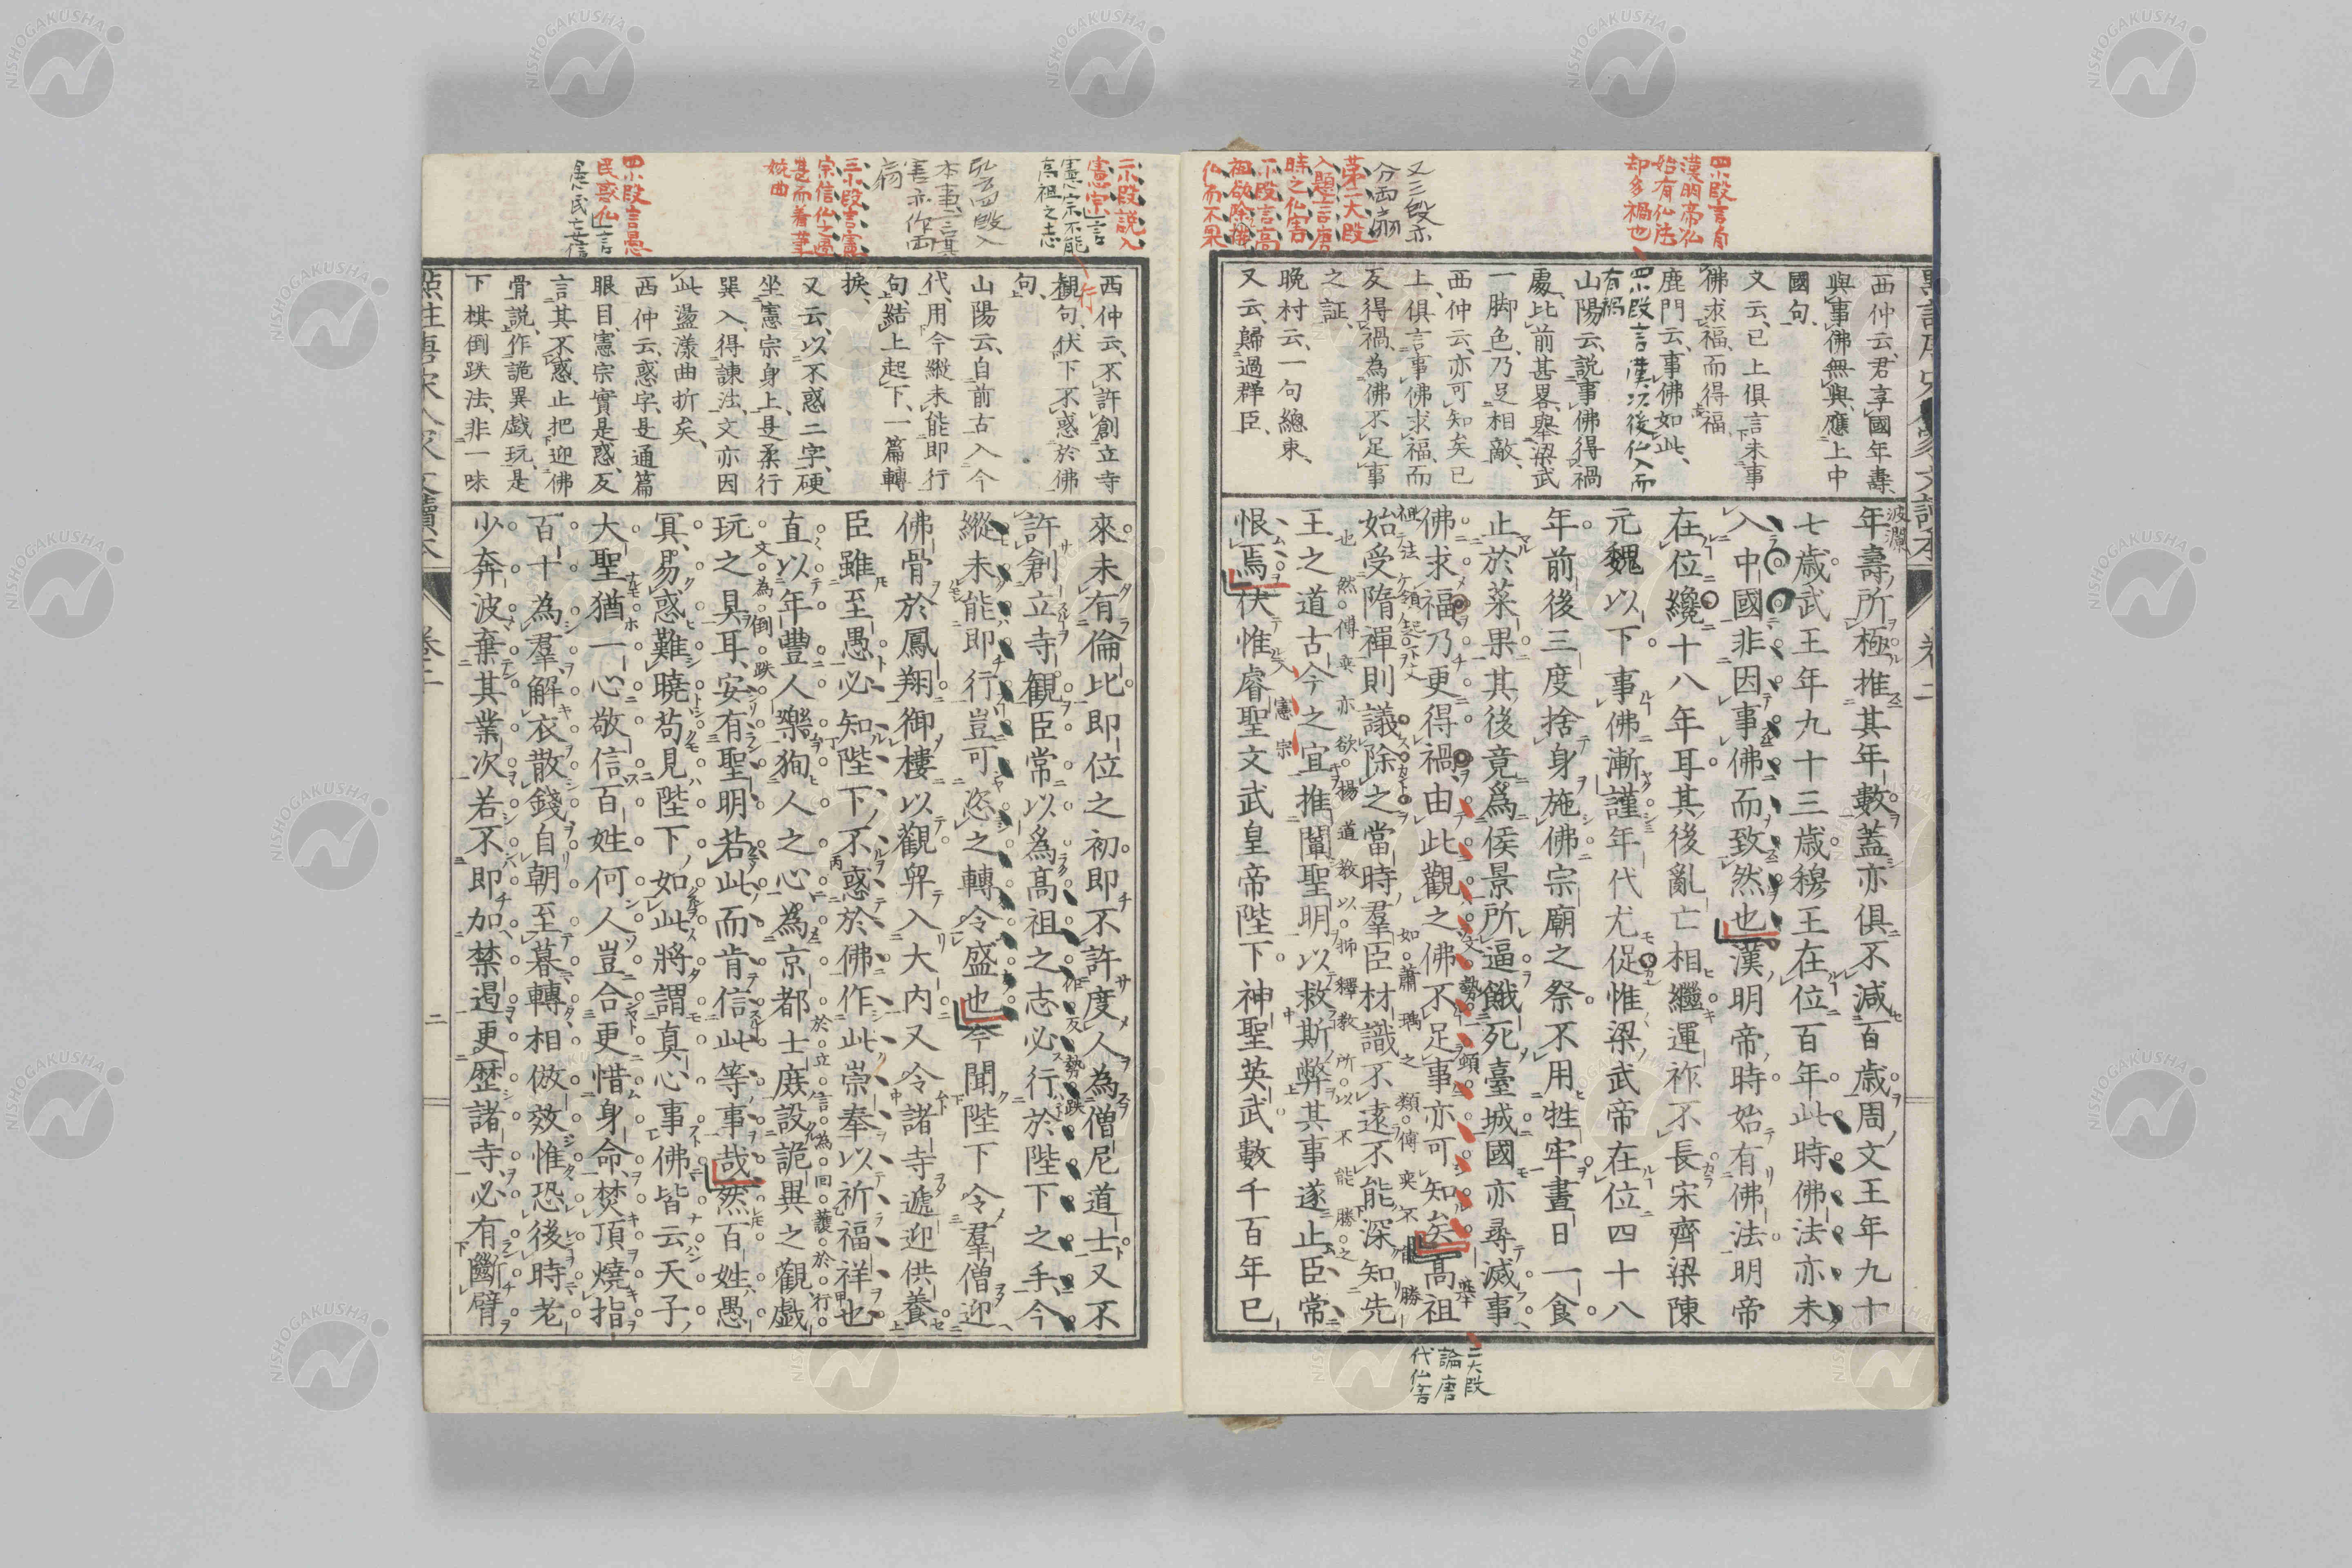 四小段言自
漢明帝仏
始有仏法
却多禍也
又三段亦
分両扇
第二大段
入題言唐
時之仏害
一小段言高
祖欲除
仏而不果
西仲云、君享國年壽、
與事佛無與、應上中
國句、
又云、已上俱言未事
佛求福、而得福、
鹿門云、事佛如此、
四小段言漢以後仏入而
有禍
山陽云、説事佛得禍
處、比前甚畧、舉梁武
一脚色、乃足相敵、
西仲云、亦可知矣已
上、俱言事佛求福、而
反得禍、為佛不足事
之証、
晩村云、一句總束、
又云、歸過群臣、
波瀾
年壽所極推其年數蓋亦俱不減百歳周文王年九十
七歳武王年九十三歳穆王在位百年此時佛法亦未
入中國非因事佛而致然也漢明帝時始有佛法明帝
在位纔十八年耳其後亂亡相繼運祚不長宋齊梁陳
元魏以下事佛漸謹年代尤促惟梁武帝在位四十八
年前後三度捨身施佛宗廟之祭不用牲牢晝日一食
止於菜果其後竟爲侯景所逼餓死臺城國亦尋滅事
文勢一頓
佛求福乃更得禍由此觀之佛不足事亦可知矣高祖
始受隋禪則議除之當時羣臣材識不遠不能深知先
王之道古今之宜推闡聖明以救斯弊其事遂止臣常
恨焉伏惟睿聖文武皇帝陛下神聖英武數千百年已
入憲宗
二大段
論唐
代仏害
二小段説入
憲宗言
憲宗不能行
高祖之志
弘方四段入
本事言其
害亦作両
扇
三小段言憲
宗信仏之過
是而着筆
婉曲
四小段言愚
民惑仏言
愚民妄信
西仲云、不許創立寺
観句、伏下不惑於佛
句、
山陽云、自前古入今
代、用今縱未能即行
句、結上起下、一篇轉
捩、
又云、以不惑二字、硬
坐憲宗身上、是柔行
巽入、得諫法、文亦因
此盪漾曲折矣、
西仲云、惑字、是通篇
眼目、憲宗實是惑、反
言其不惑、止把迎佛
骨説、作詭異戲玩、是
下棋倒跌法、非一味
來未有倫比即位之初即不許度人為僧尼道士又不
許創立寺観臣常以爲髙祖之志必行於陛下之手今
作反勢跌
縱未能即行豈可恣之轉令盛也今聞陛下令羣僧迎
佛骨於鳳翔御樓以觀舁入大内又令諸寺遞迎供養
臣雖至愚必知陛下不惑於佛作此崇奉以祈福祥也
直以年豐人樂狥人之心為京都士庶設詭異之觀戲
玩之具耳安有聖明若此而肯信此等事哉然百姓愚
文為倒跌
冥易惑難曉茍見陛下如此將謂真心事佛皆云天子
大聖猶一心敬信百姓何人豈合更惜身命焚頂燒指
百十為羣解衣散錢自朝至暮轉相倣效惟恐後時老
少奔波棄其業次若不即加禁遏更歴諸寺必有斷臂
二